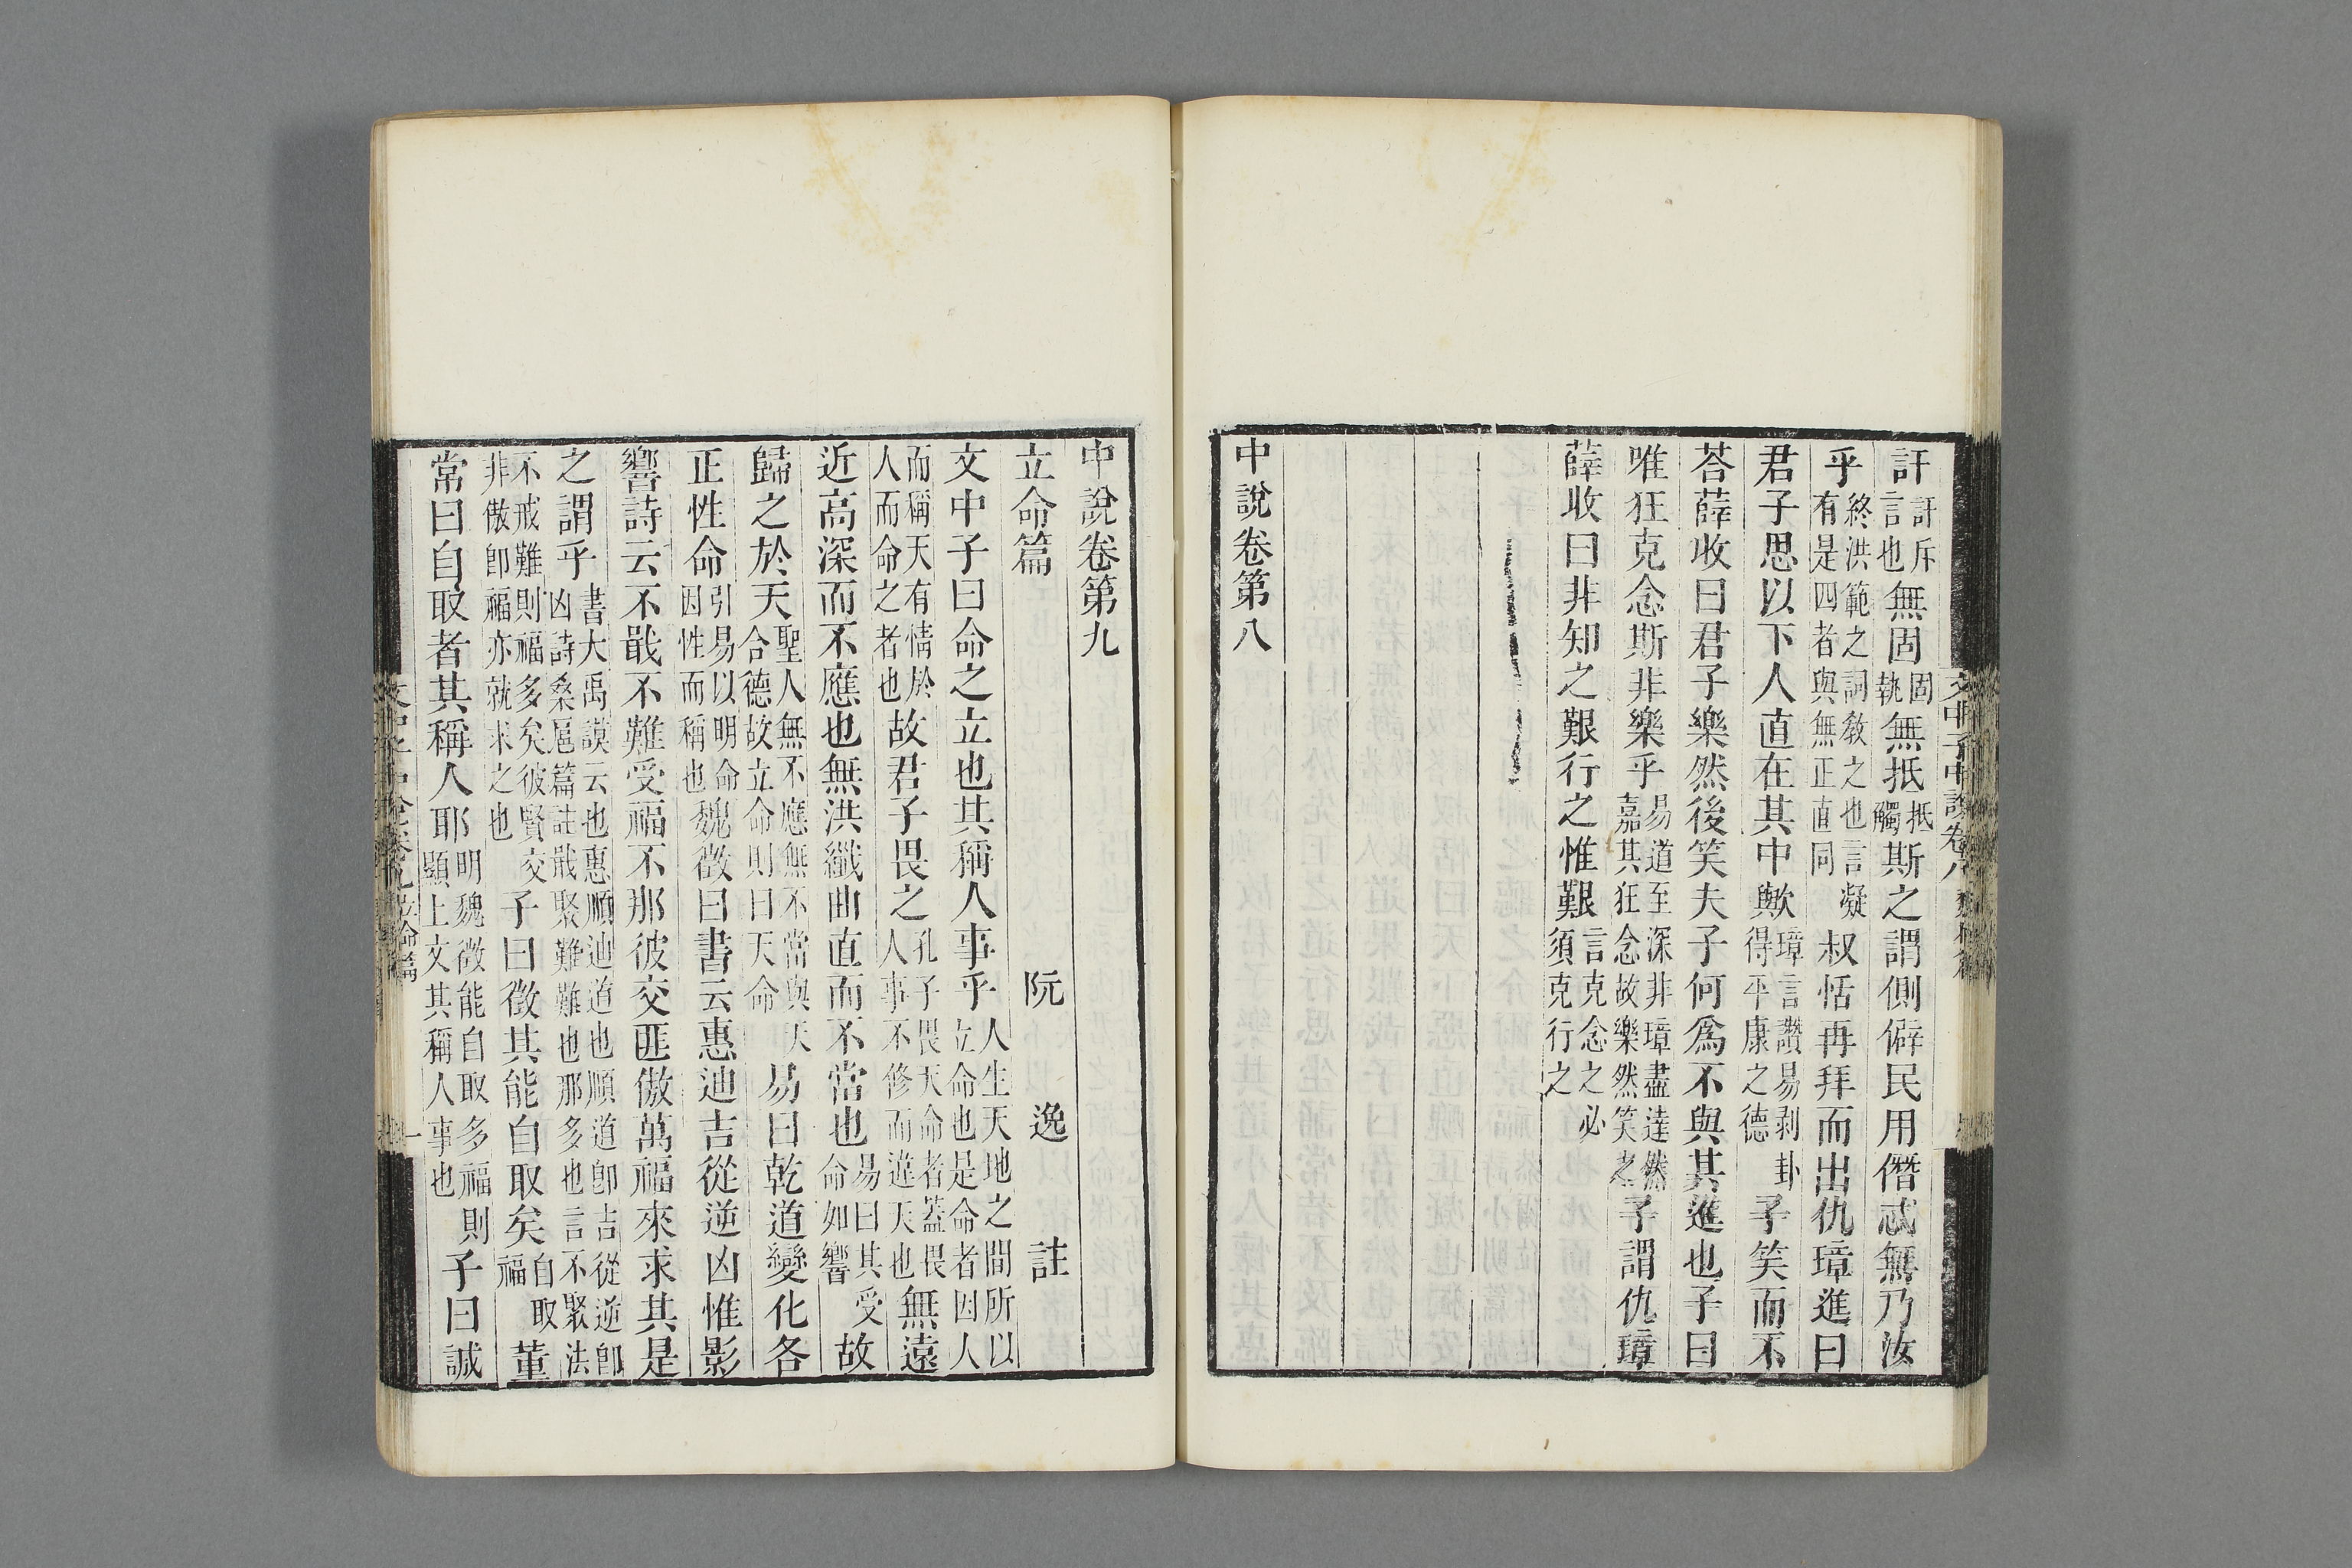 訐訐斥言也無固固執無抵抵觸斯之謂側僻民用僭忒無乃汝
乎終洪範之詞敘之也言凝有是四者與無正直同叔恬再拜而出仇璋進曰
君子思以下人直在其中歟璋言讚易剥卦得平康之德子笑而不
荅薛收曰君子樂然後笑夫子何爲不與其進也子曰
唯狂克念斯非樂乎易道至深非璋盡達然嘉其狂念故樂然笑之子謂仇璋
薛收曰非知之艱行之惟艱言克念之必須克行之
中說卷第八
中說卷第九
立命篇　阮　逸　註
文中子曰命之立也其稱人事乎人生天地之間所以立命也是命者因人
而稱天有情於人而命之者也故君子畏之孔子畏天命者蓋畏人事不修而違天也無遠
近高深而不應也無洪纖曲直而不當也易曰其受命如響故
歸之於天聖人無不應無不當與天合德故立命則曰天命易曰乾道變化各
正性命引易以明命因性而稱也魏徵曰書云惠迪吉從逆凶惟影
響詩云不戢不難受福不那彼交匪傲萬福來求其是
之謂乎書大禹謨云也惠順迪道也順道卽吉從逆卽凶詩桑扈篇註戢聚難難也那多也言不聚法
不戒難則福多矣彼賢交非傲卽福亦就求之也子曰徵其能自取矣自取福董
常曰自取者其稱人耶明魏徵能自取多福則顯上文其稱人事也子曰誠